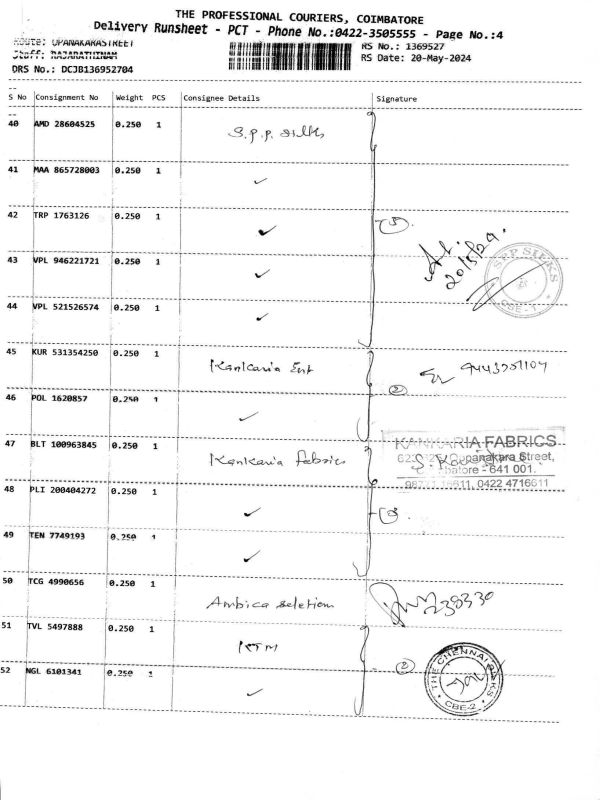 THE PROFESSIONAL COURIERS, COIMBATORE
Delivery Runsheet - PCT - Phone No.:0422-3505555 - Page No.:4
Route: UPANAKARASTREET
RS No.: 1369527
Staff: RAJARATHINAM
RS Date: 20-May-2024
DRS No.: DCJB136952704
S No Consignment No Weight PCS Consignee Details Signature
40 AMD 28604525 0.250 1 S.p.p. silks
41 MAA 865728003 0.250 1 ✓
42 TRP 1763126 0.250 1 ✓
5
43 VPL 946221721 0.250 1 ✓
20/5/24.
SPP SILKS
CBE-1
44 VPL 521526574 0.250 1 ✓
45 KUR 531354250 0.250 1 Kankaria Ent
2
46 POL 1620857 0.250 1 ✓
47 BLT 100963845 0.250 1 Kankaria fabrics
KANKARIA FABRICS
Oupanakara Street,
batore - 641 001.
0422 4716611
48 PLI 200404272 0.250 1 ✓
3
49 TEN 7749193 0.250 1 ✓
50 TCG 4990656 0.250 1 Ambica seletion
51 TVL 5497888 0.250 1 KTM
2
THE CHENNAI SILKS
CBE-2
52 NGL 6101341 0.250 1 ✓